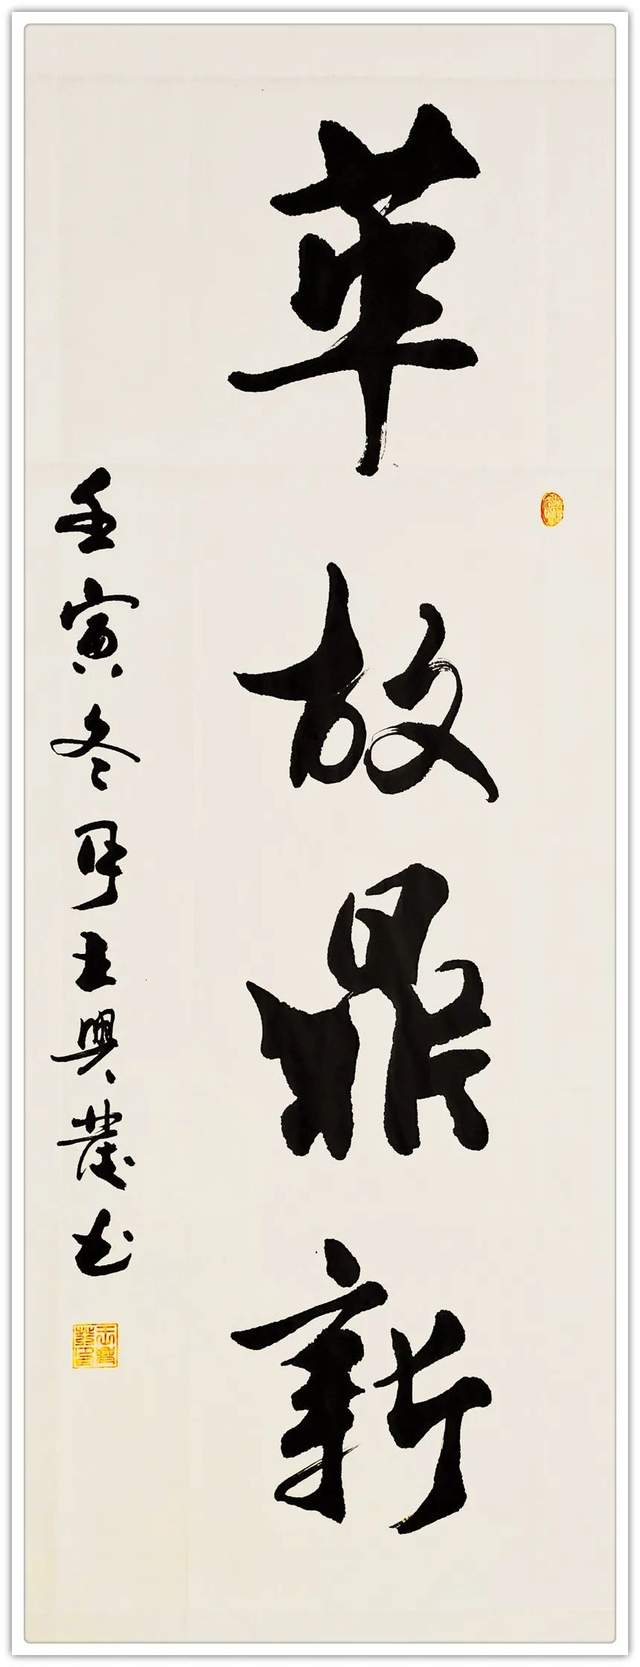 革故鼎新
壬寅冬月王興農书